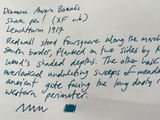 Diamine Aurora Borealis
Shark pen! (XF nib)
Leuchtturm 1917
Redwall stood foursquare along the marches
south border, flanked on two sides by
wood's shaded depths. The other half
overlooked undulating sweeps of meadow
ancient gate facing the long dusty
western perimeter.